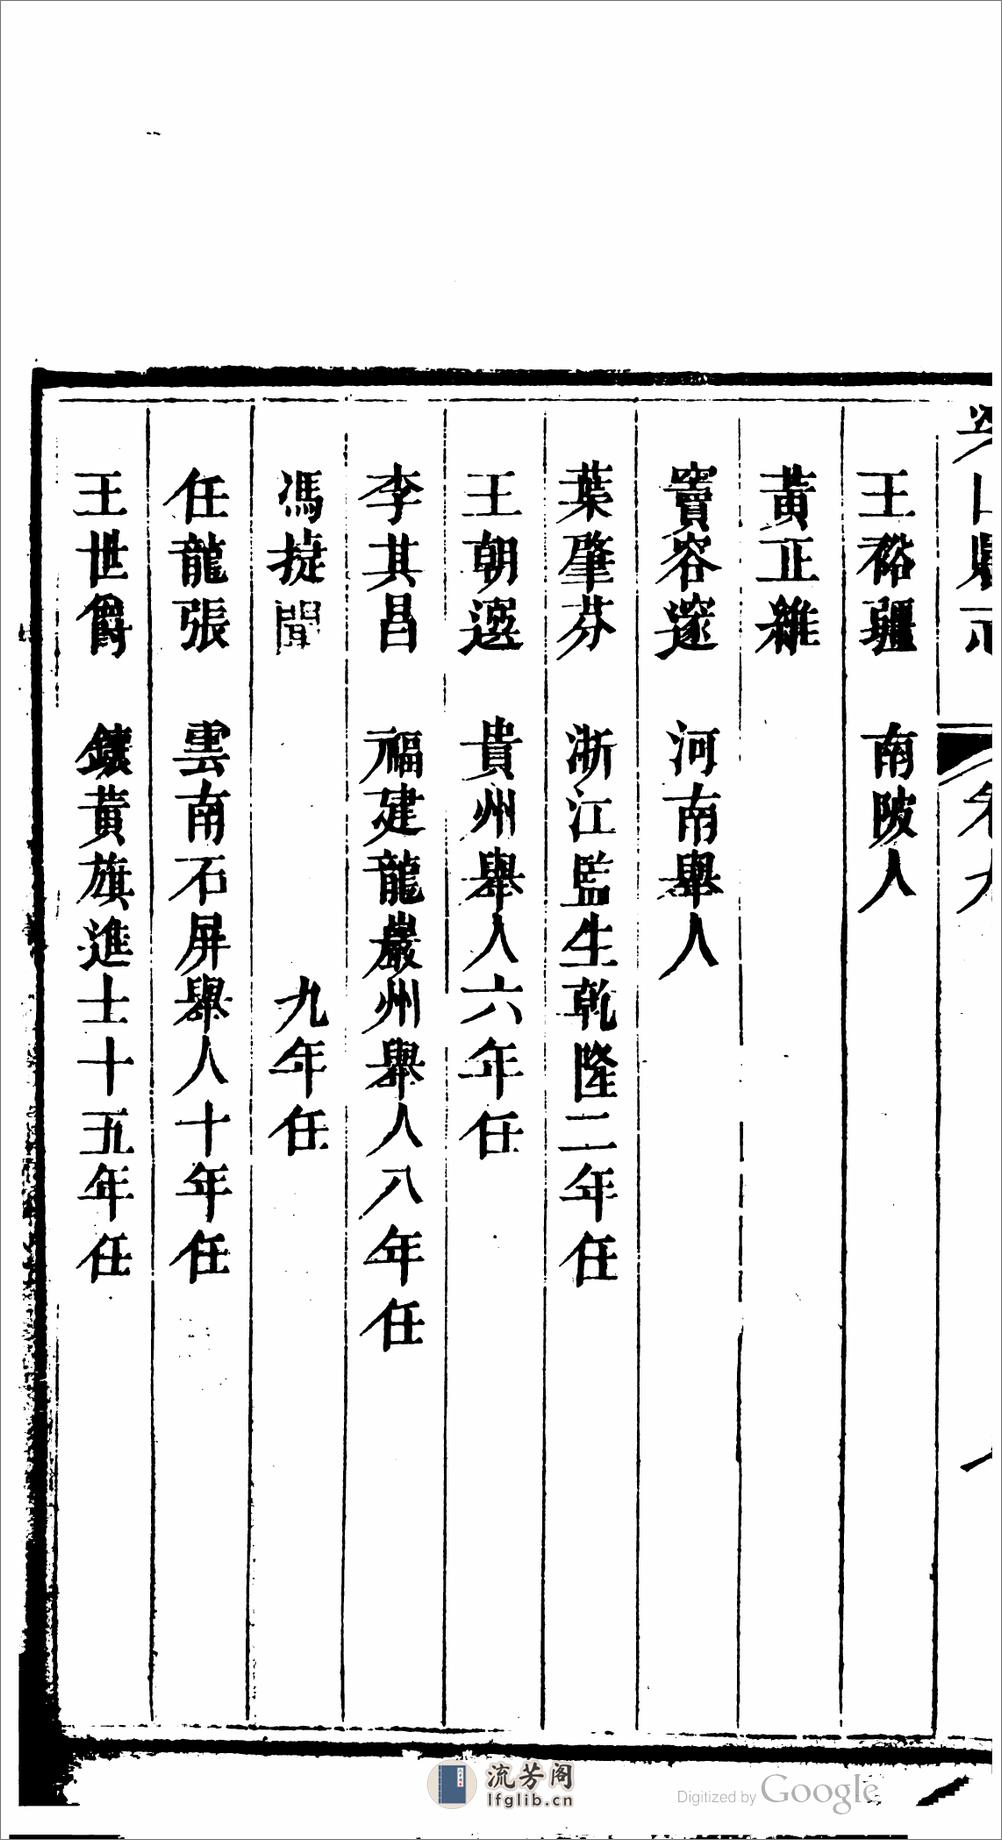 山縣志 卷六
王裕疆 南陂人
黃正雜
竇容邃 河南舉人
葉肇芬 浙江監生乾隆二年任
王朝選 貴州舉人六年任
李其昌 福建龍巖州舉人八年任
馮捷聞 九年任
任龍張 雲南石屏舉人十年任
王世爵 鑲黃旗進士十五年任
流芳阁
lfglib.cn
Digitized by Google